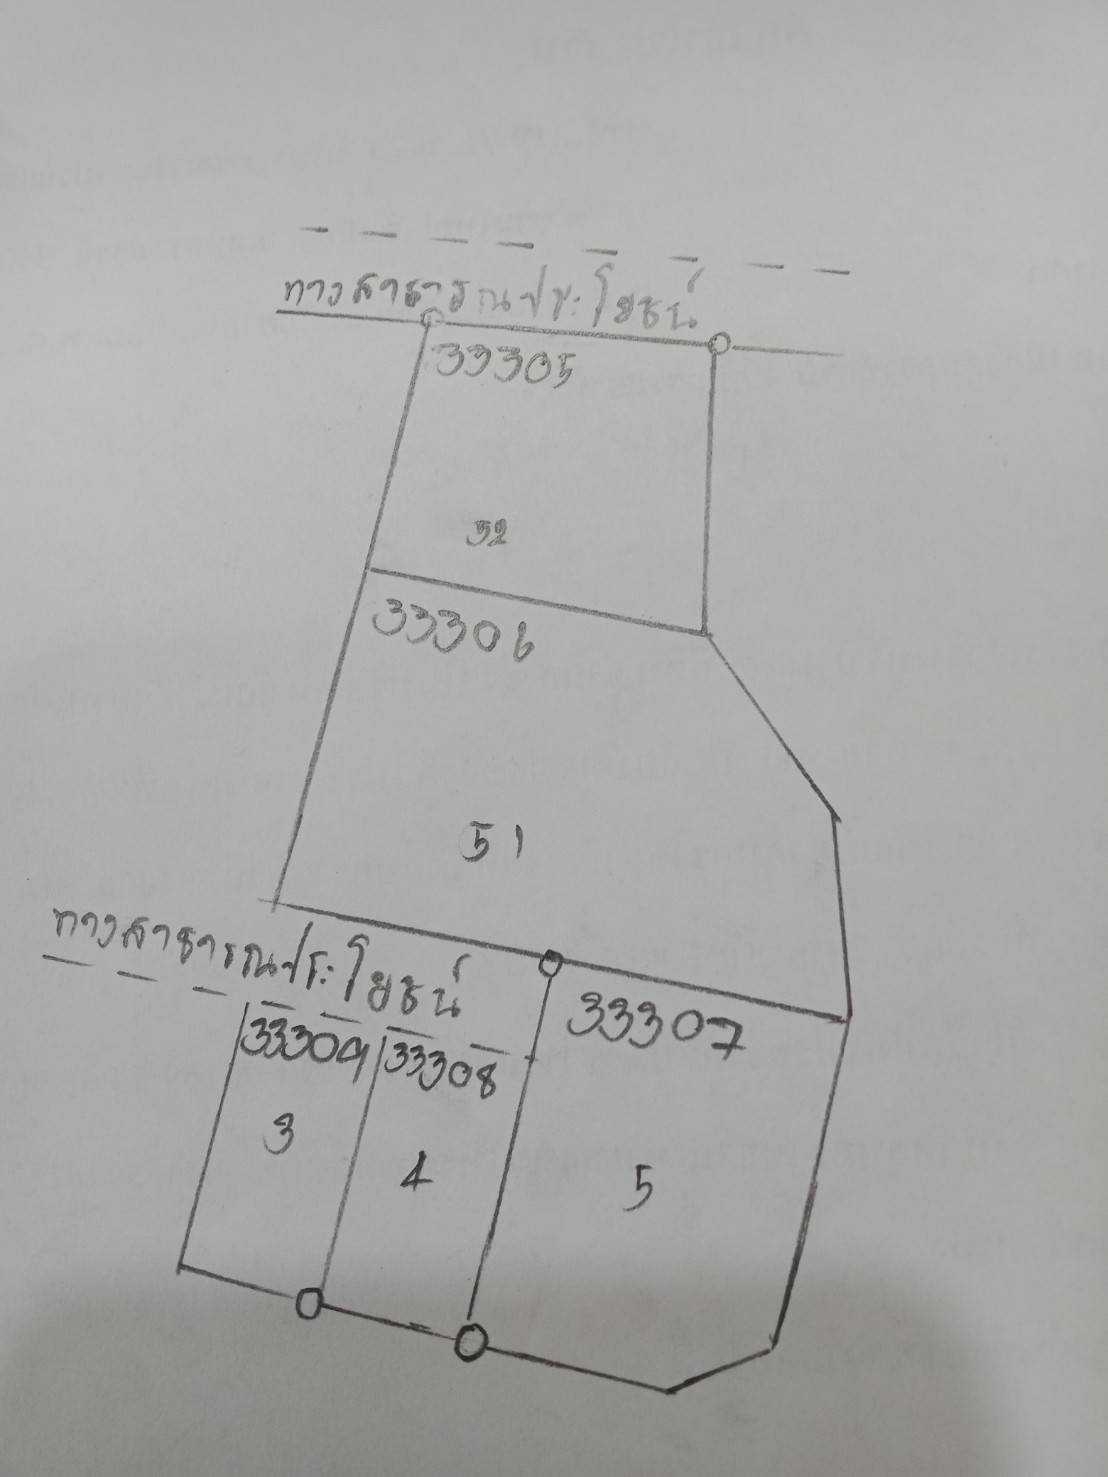 ทางสาธารณประโยชน์
33305
52
33306
51
ทางสาธารณประโยชน์
33307
33309
33308
3
4
5